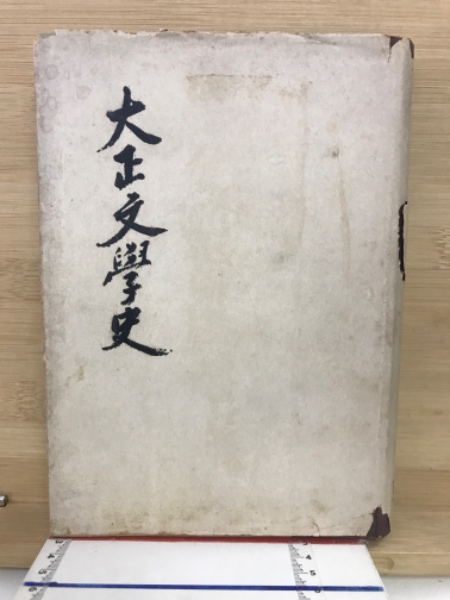 大正文學史